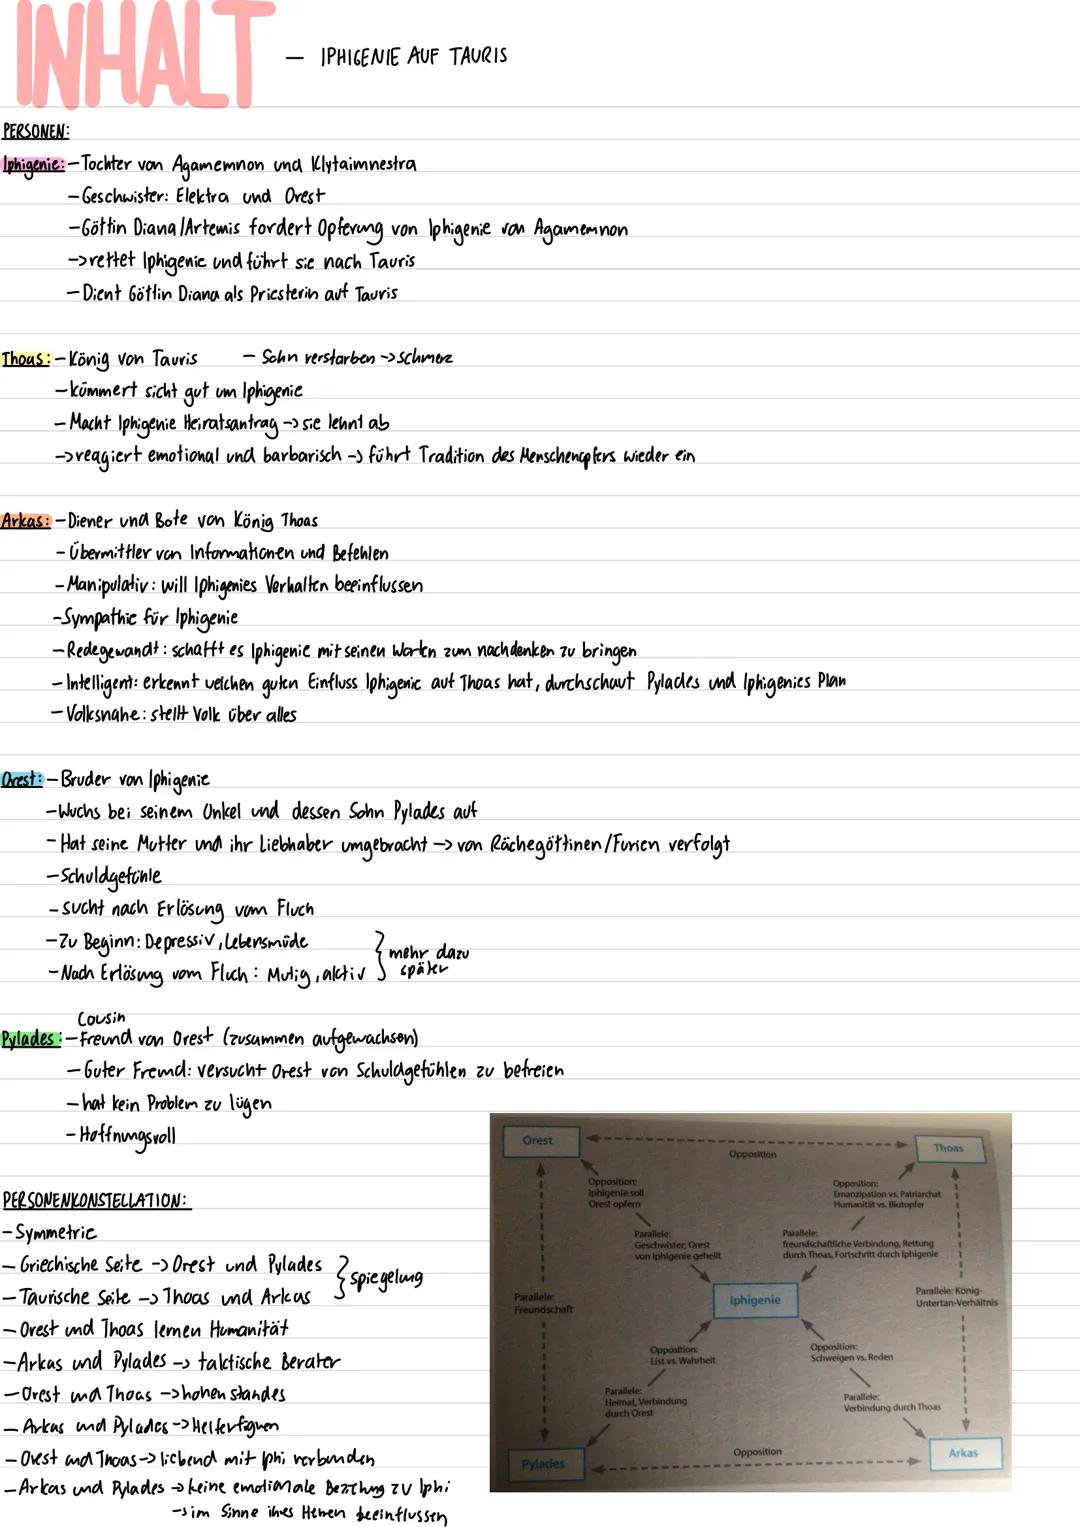 INHALT – IPHIGENIE AUF TAURIS
PERSONEN:
Iphigenie: – Tochter von Agamemnon und Klytaimnestra
– Geschwister: Elektra und Orest
– Göttin Diana/Artemis fordert Opferung von Iphigenie von Agamemnon
-> rettet Iphigenie und führt sie nach Tauris
– Dient Göttin Diana als Priesterin auf Tauris
Thoas: – König von Tauris – Sohn verstarben -> Schmerz
– kümmert sicht gut um Iphigenie
– Macht Iphigenie Heiratsantrag -> sie lehnt ab
-> reagiert emotional und barbarisch -> führt Tradition des Menschenopfers wieder ein
Arkas: – Diener und Bote von König Thoas
– Übermittler von Informationen und Befehlen
– Manipulativ: will Iphigenies Verhalten beeinflussen
– Sympathie für Iphigenie
– Redegewandt: schafft es Iphigenie mit seinen Worten zum nachdenken zu bringen
– Intelligent: erkennt welchen guten Einfluss Iphigenie auf Thoas hat, durchschaut Pylades und Iphigenies Plan
– Volksnahe: stellt Volk über alles
Orest: – Bruder von Iphigenie
– Wuchs bei seinem Onkel und dessen Sohn Pylades auf
– Hat seine Mutter und ihr Liebhaber umgebracht -> von Rächegöttinen/Furien verfolgt
– Schuldgefühle
– sucht nach Erlösung vom Fluch
– Zu Beginn: Depressiv, Lebensmüde
– Nach Erlösung vom Fluch: Mutig, aktiv } mehr dazu
später
Cousin
Pylades: – Freund von Orest (zusammen aufgewachsen)
– Guter Freund: versucht Orest von Schuldgefühlen zu befreien
– hat kein Problem zu lügen
– Hoffnungsvoll
PERSONENKONSTELLATION:
– Symmetrie
– Griechische Seite -> Orest und Pylades
– Taurische Seite -> Thoas und Arkas } spiegelung
– Orest und Thoas lernen Humanität
– Arkas und Pylades -> taktische Berater
– Orest und Thoas -> hohen standes
– Arkas und Pylades -> Helferfiguren
– Orest und Thoas -> liebend mit Iphi verbunden
– Arkas und Pylades -> keine emotionale Beziehung zu Iphi
-> im Sinne ihres Herren beeinflussen
Orest
Opposition
Thoas
Opposition:
Iphigenie soll
Orest opfern
Opposition:
Emanzipation vs. Patriarchat
Humanität vs. Blutopfer
Parallele:
Geschwister; Orest
von Iphigenie geheilt
Parallele:
freundschaftliche Verbindung, Rettung
durch Thoas, Fortschritt durch Iphigenie
Parallele:
Freundschaft
Iphigenie
Parallele: König-
Untertan-Verhältnis
Opposition:
List vs. Wahrheit
Opposition:
Schweigen vs. Reden
Parallele:
Heimat, Verbindung
durch Orest
Parallele:
Verbindung durch Thoas
Pylades
Opposition
Arkas